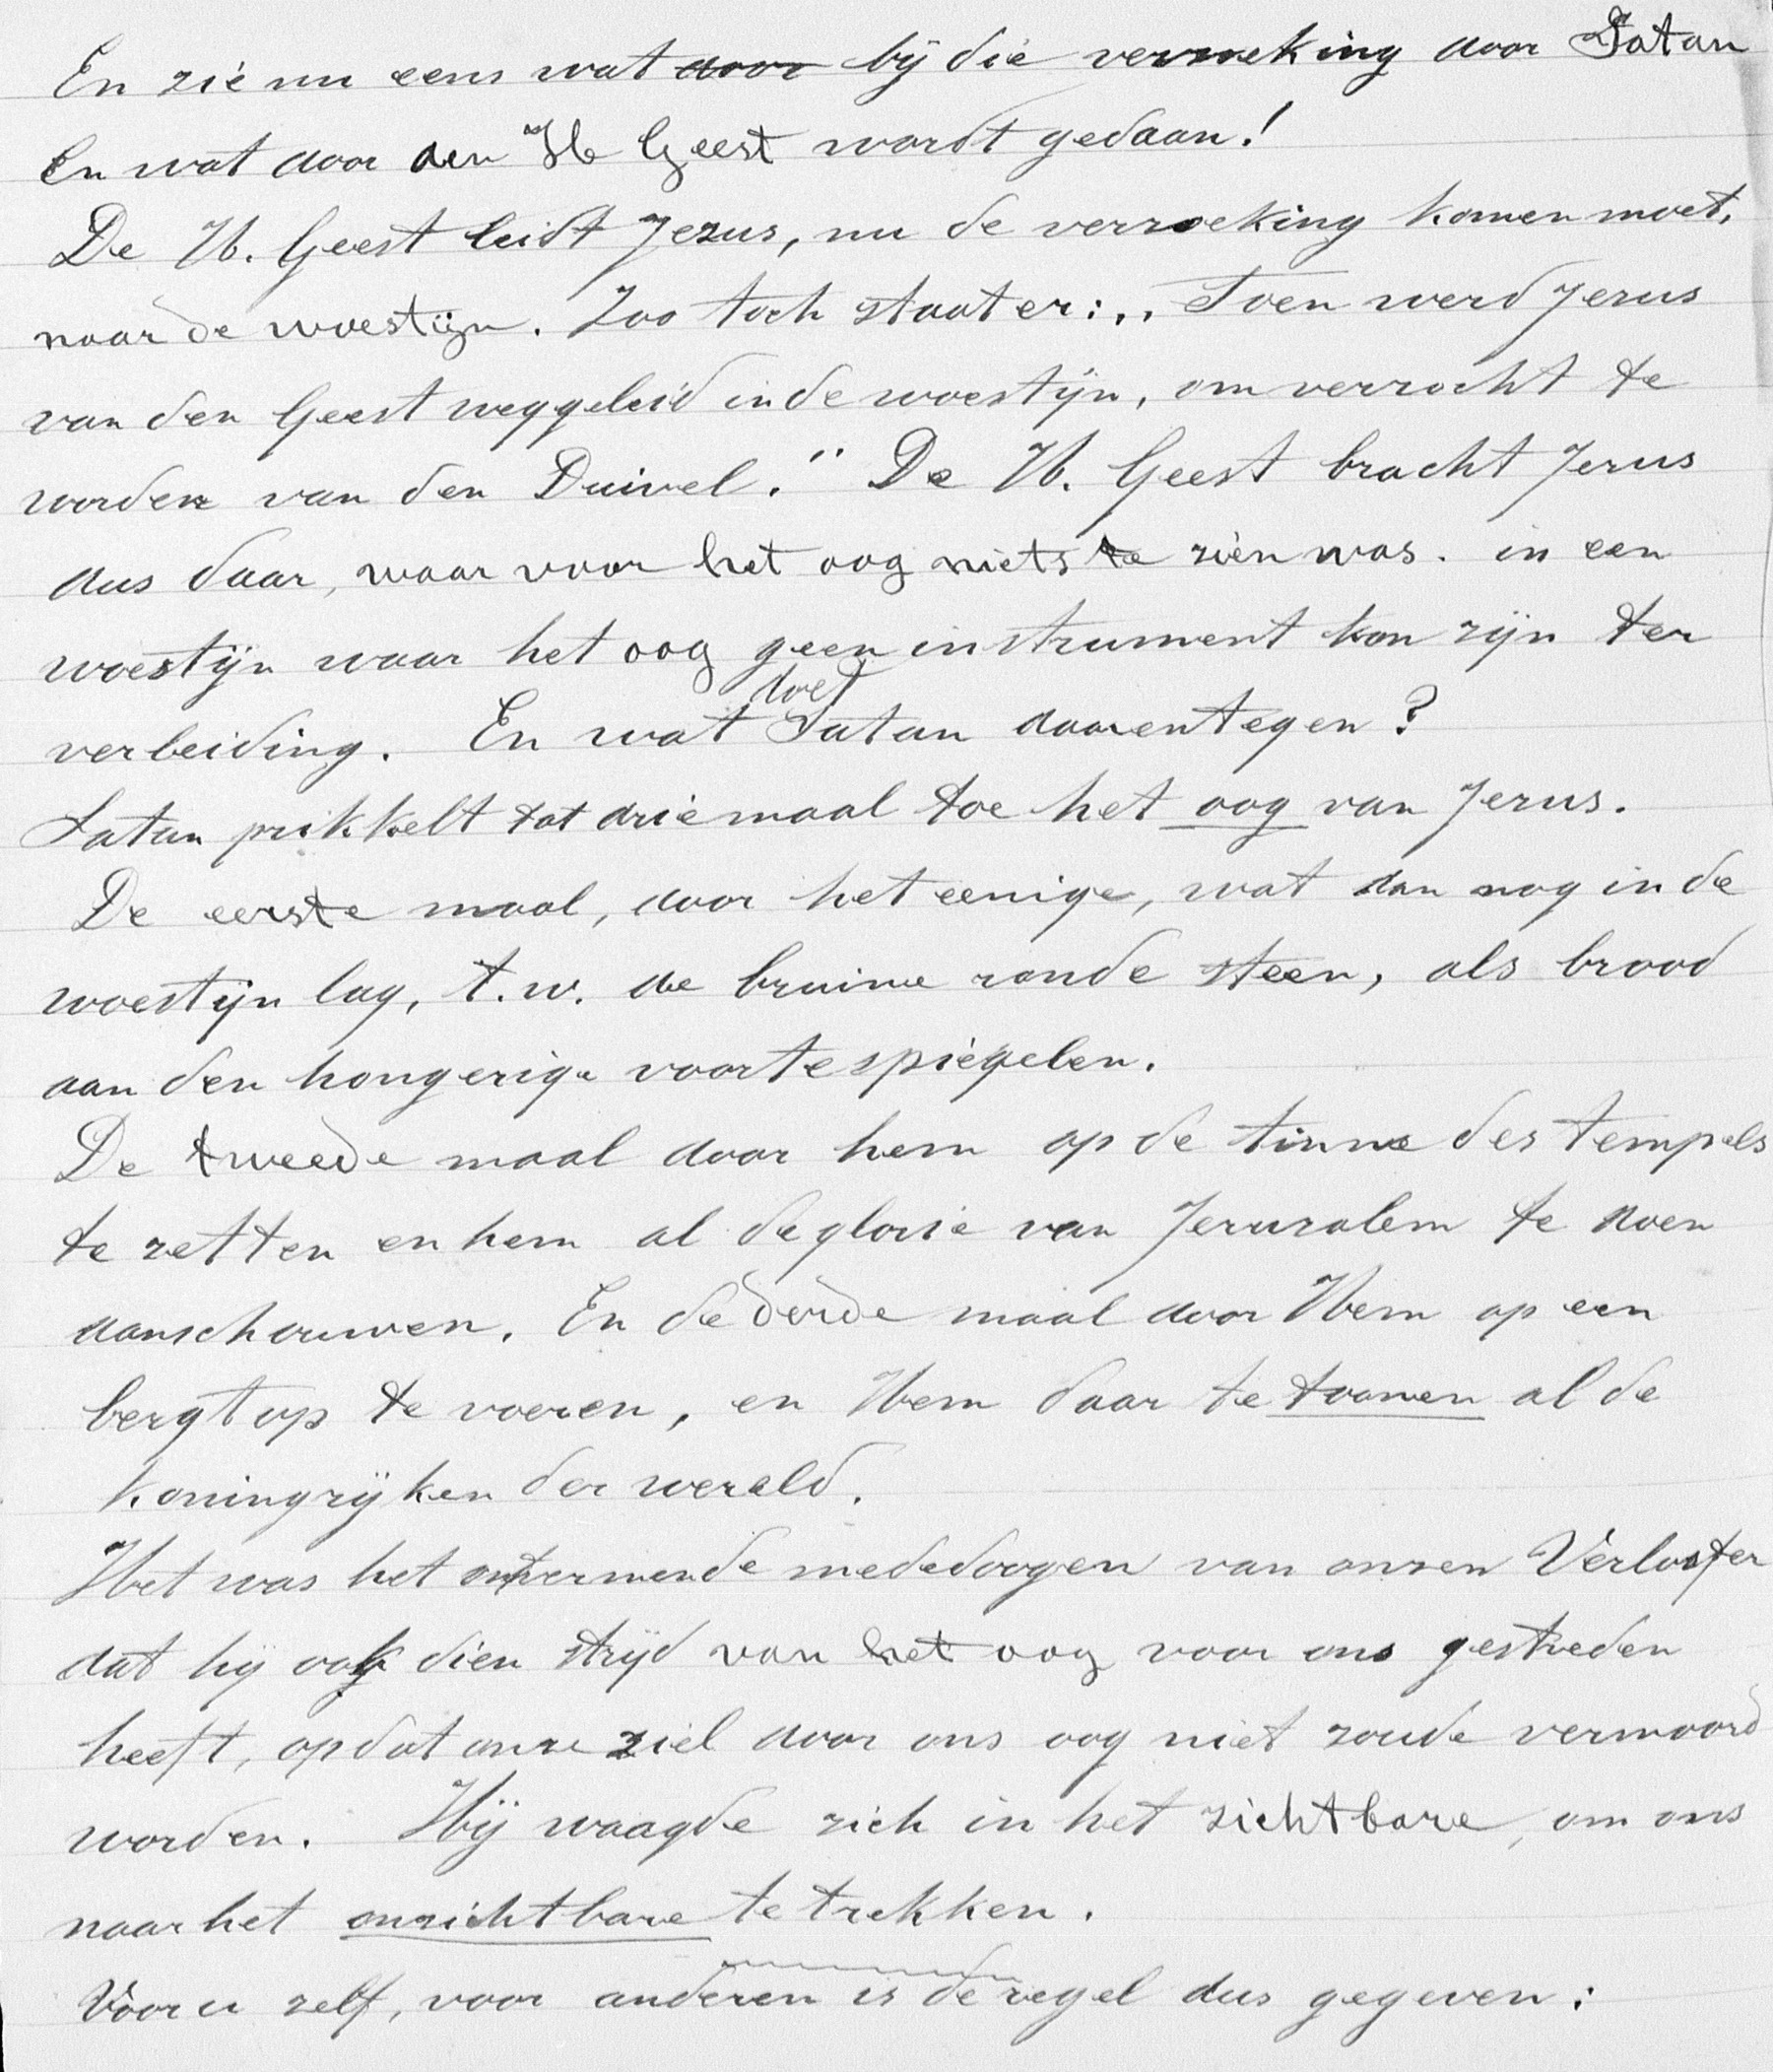 En zie nu eens wat ~~door~~ bij die verzoeking door Satan
en wat door den H Geest wordt gedaan!
De H. Geest leidt Jezus, nu de verzoeking komen moet,
naar de woestijn. Zoo toch staat er: ,, Toen werd Jezus
van den Geest weggeleid in de woestijn, om verzocht te
worden van den Duivel." De H. Geest bracht Jezus
dus daar, waar voor het oog niets te zien was. in een
woestijn waar het oog geen instrument kon zijn ter
verleiding. En wat doet Satan daarentegen?
Satan prikkelt tot driemaal toe het oog van Jezus.
De eerste maal, door het eenige, wat dan nog in de
woestijn lag, t.w. de bruine ronde steen, als brood
aan den hongerige voor te spiegelen.
De tweede maal door hem op de tinne des tempels
te zetten en hem al de glorie van Jeruzalem te doen
aanschouwen. En de derde maal door Hem op een
bergtop te voeren, en Hem daar te toonen al de
Koningrijken der wereld.
Het was het ontfermende mededoogen van onzen Verlosser
dat hij ook dien strijd van het oog voor ons gestreden
heeft, opdat onze ziel door ons oog niet zoude vermoord
worden. Hij waagde zich in het zichtbare, om ons
naar het onzichtbare te trekken.
Voor u zelf, voor anderen is de regel dus gegeven: